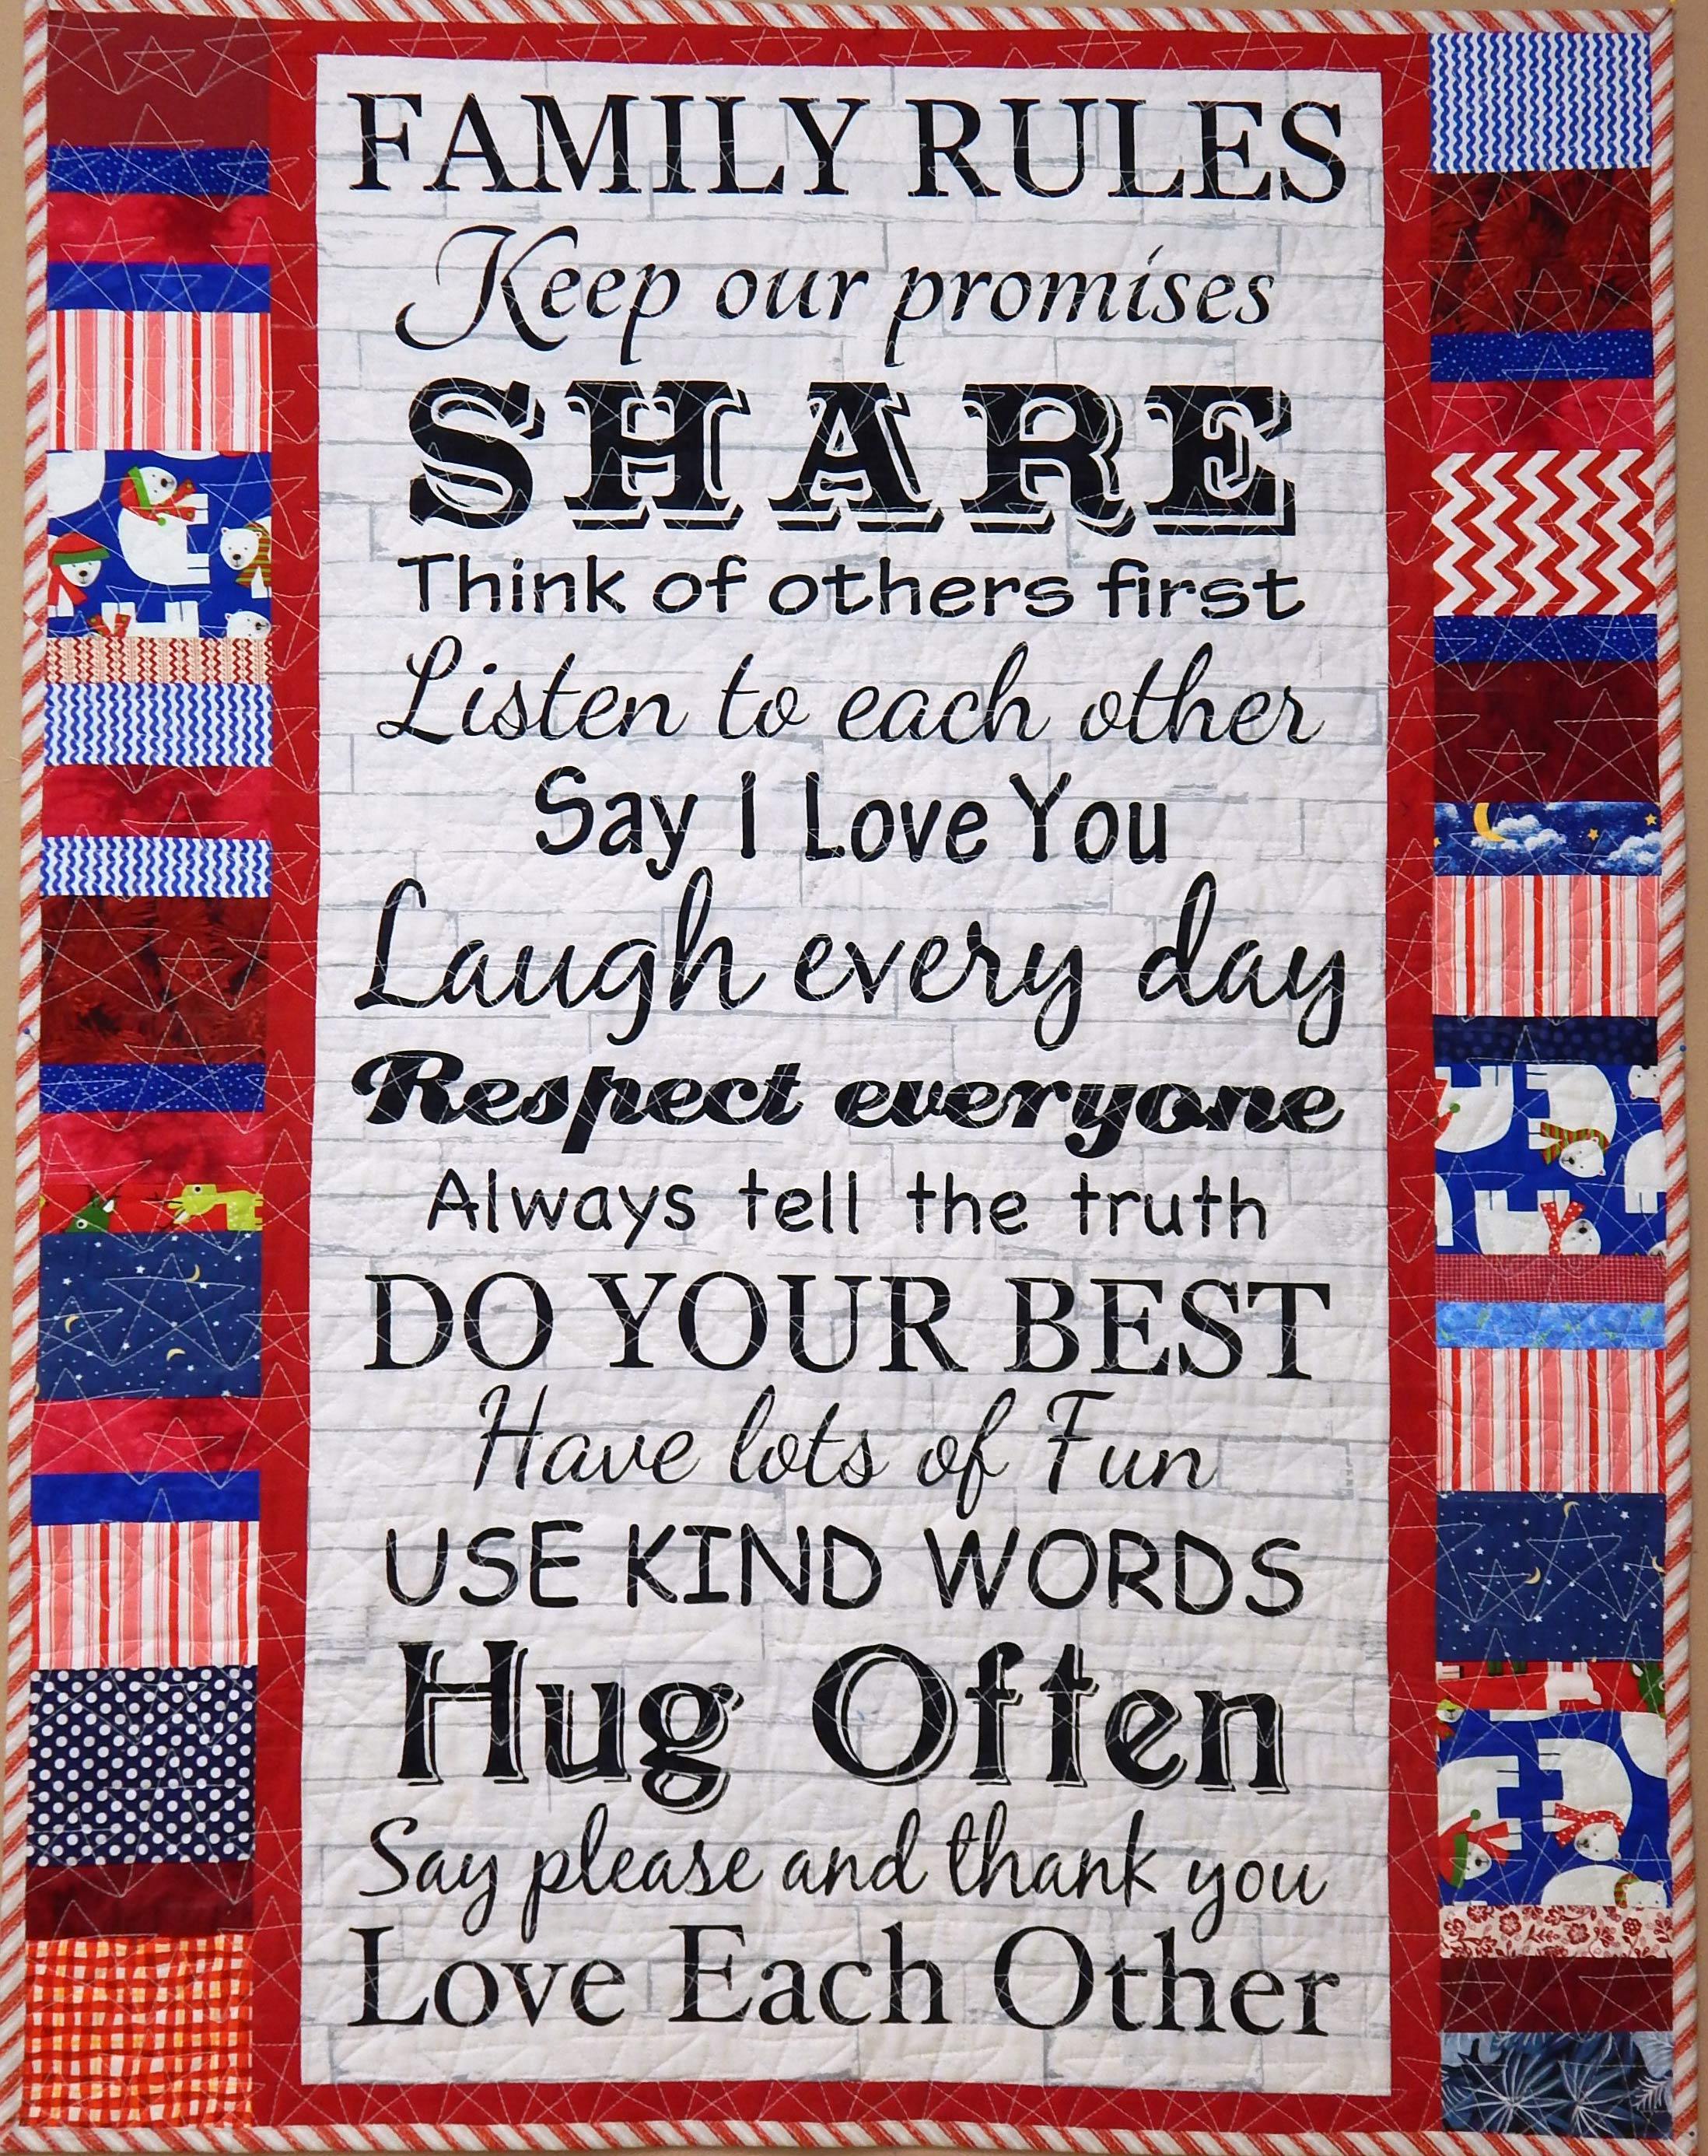 FAMILY RULES
Keep our promises
SHARE
Think of others first
Listen to each other
Say I Love You
Laugh every day
Respect everyone
Always tell the truth
DO YOUR BEST
Have lots of Fun
USE KIND WORDS
Hug Often
Say please and thank you
Love Each Other